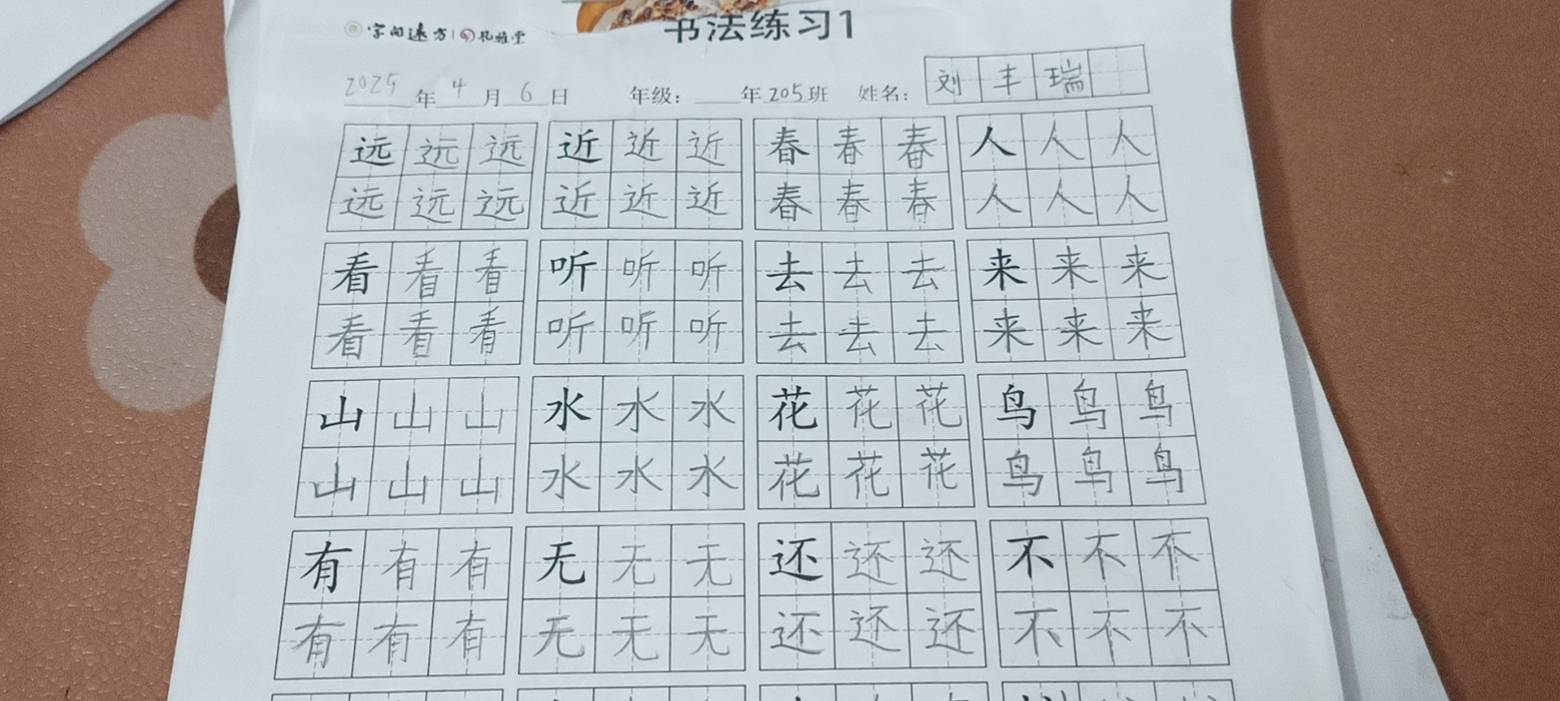 字间速方 孔雅堂
书法练习1
2025年4月6日 年级： 年205班 姓名：刘丰瑞
远远远 近近近 春春春 人人人
远远远 近近近 春春春 人人人
看看看 听听听 去去去 来来来
看看看 听听听 去去去 来来来
山山山 水水水 花花花 鸟鸟鸟
山山山 水水水 花花花 鸟鸟鸟
有有有 无无无 还还还 不不不
有有有 无无无 还还还 不不不